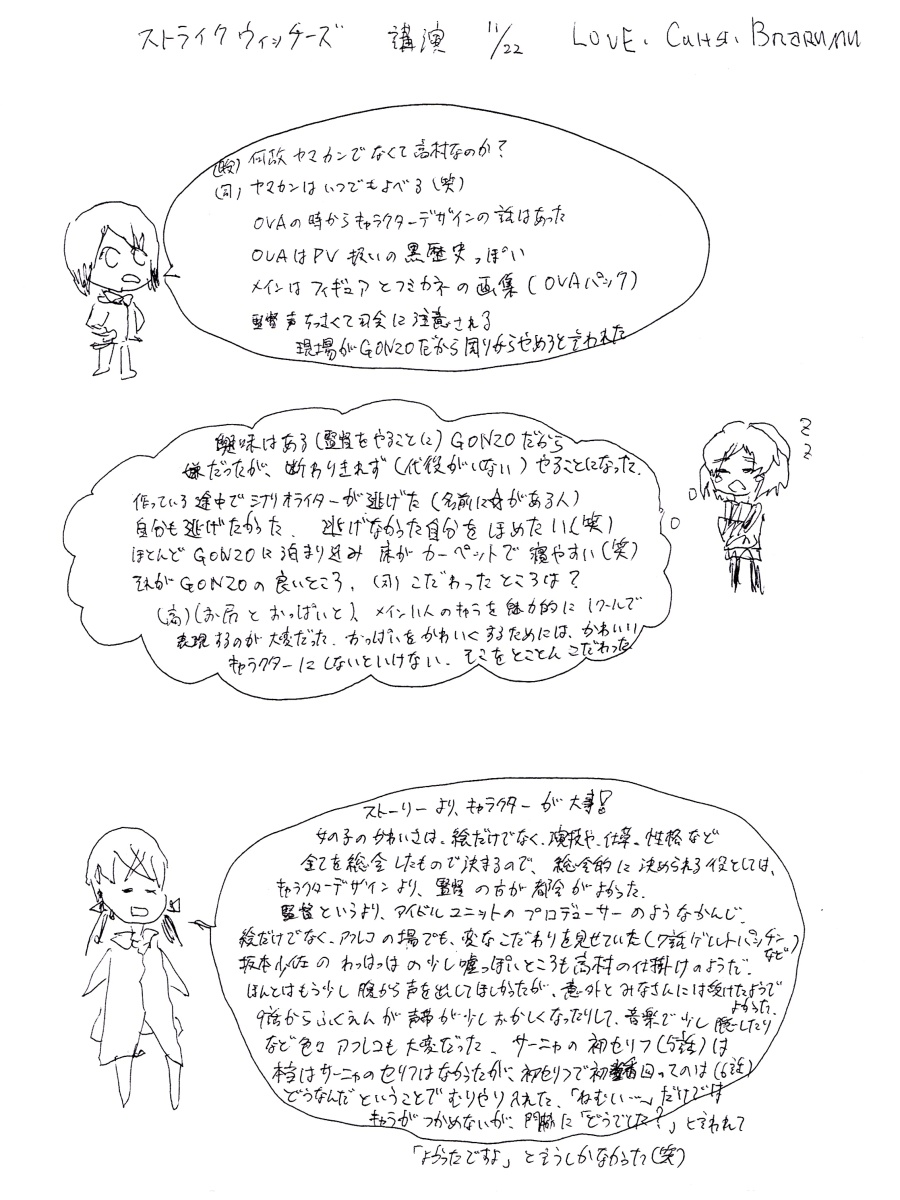 ストライクウィッチーズ 講演 11/22 LOVE.
何故ヤマカンでなくて高村なのか?
(司) ヤマカンはいつでもよべる(笑)
OVAの時からキャラクターデザインの話はあった
OVAはPV扱いの黒歴史っぽい
メインはフィギュアとフミカネの画集(OVAパック)
監督声ちっさくて司会に注意される
現場がGONZOだから周りからやめろと言われた
興味はある(監督をやることに)GONZOだから
嫌だったが、断わりきれず(代役がいない)やることになった.
作っている途中でシナリオライターが逃げた(名前に がある人)
自分も逃げたかった. 逃げなかった自分をほめたい(笑)
ほとんどGONZOに泊まり込み 床がカーペットで寝やすい(笑)
それがGONZOの良いところ. (司)こだわったところは?
(高)(お尻とおっぱいと)、メイン11人のキャラを魅力的に1クールで
表現するのが大変だった. おっぱいをかわいくするためには、かわいい
キャラクターにしないといけない. そこをとことんこだわった
ストーリーより、キャラクターが大事!
女の子のかわいさは、絵だけでなく、演技や、仕草、性格など
全てを総合したもので決まるので、総合的に決められる役としては、
キャラクターデザインより、監督の方が都合がよかった.
監督というより、アイドルユニットのプロデューサーのようなかんじ.
絵だけでなく、アフレコの場でも、変なこだわりを見せていた(7話ゲルトパンチなど)
坂本少佐のわっはっはの少し嘘っぽいところも高村の仕掛けのようだ.
ほんとはもう少し腹から声を出してほしかったが、意外とみなさんには受けたようでよかった.
9話からふくえんが声帯が少しおかしくなったりして、音楽で少し隠したり
など色々アフレコも大変だった. サーニャの初セリフ(5話)は
本当はサーニャのセリフはなかったが、初セリフで初 回ってのは(6話)
どうなんだということでむりやり入れた. 「ねむい…」だけでは
キャラがつかめないが、門脇に「どうでした?」と言われて
「よかったですよ」と言うしかなかった(笑)